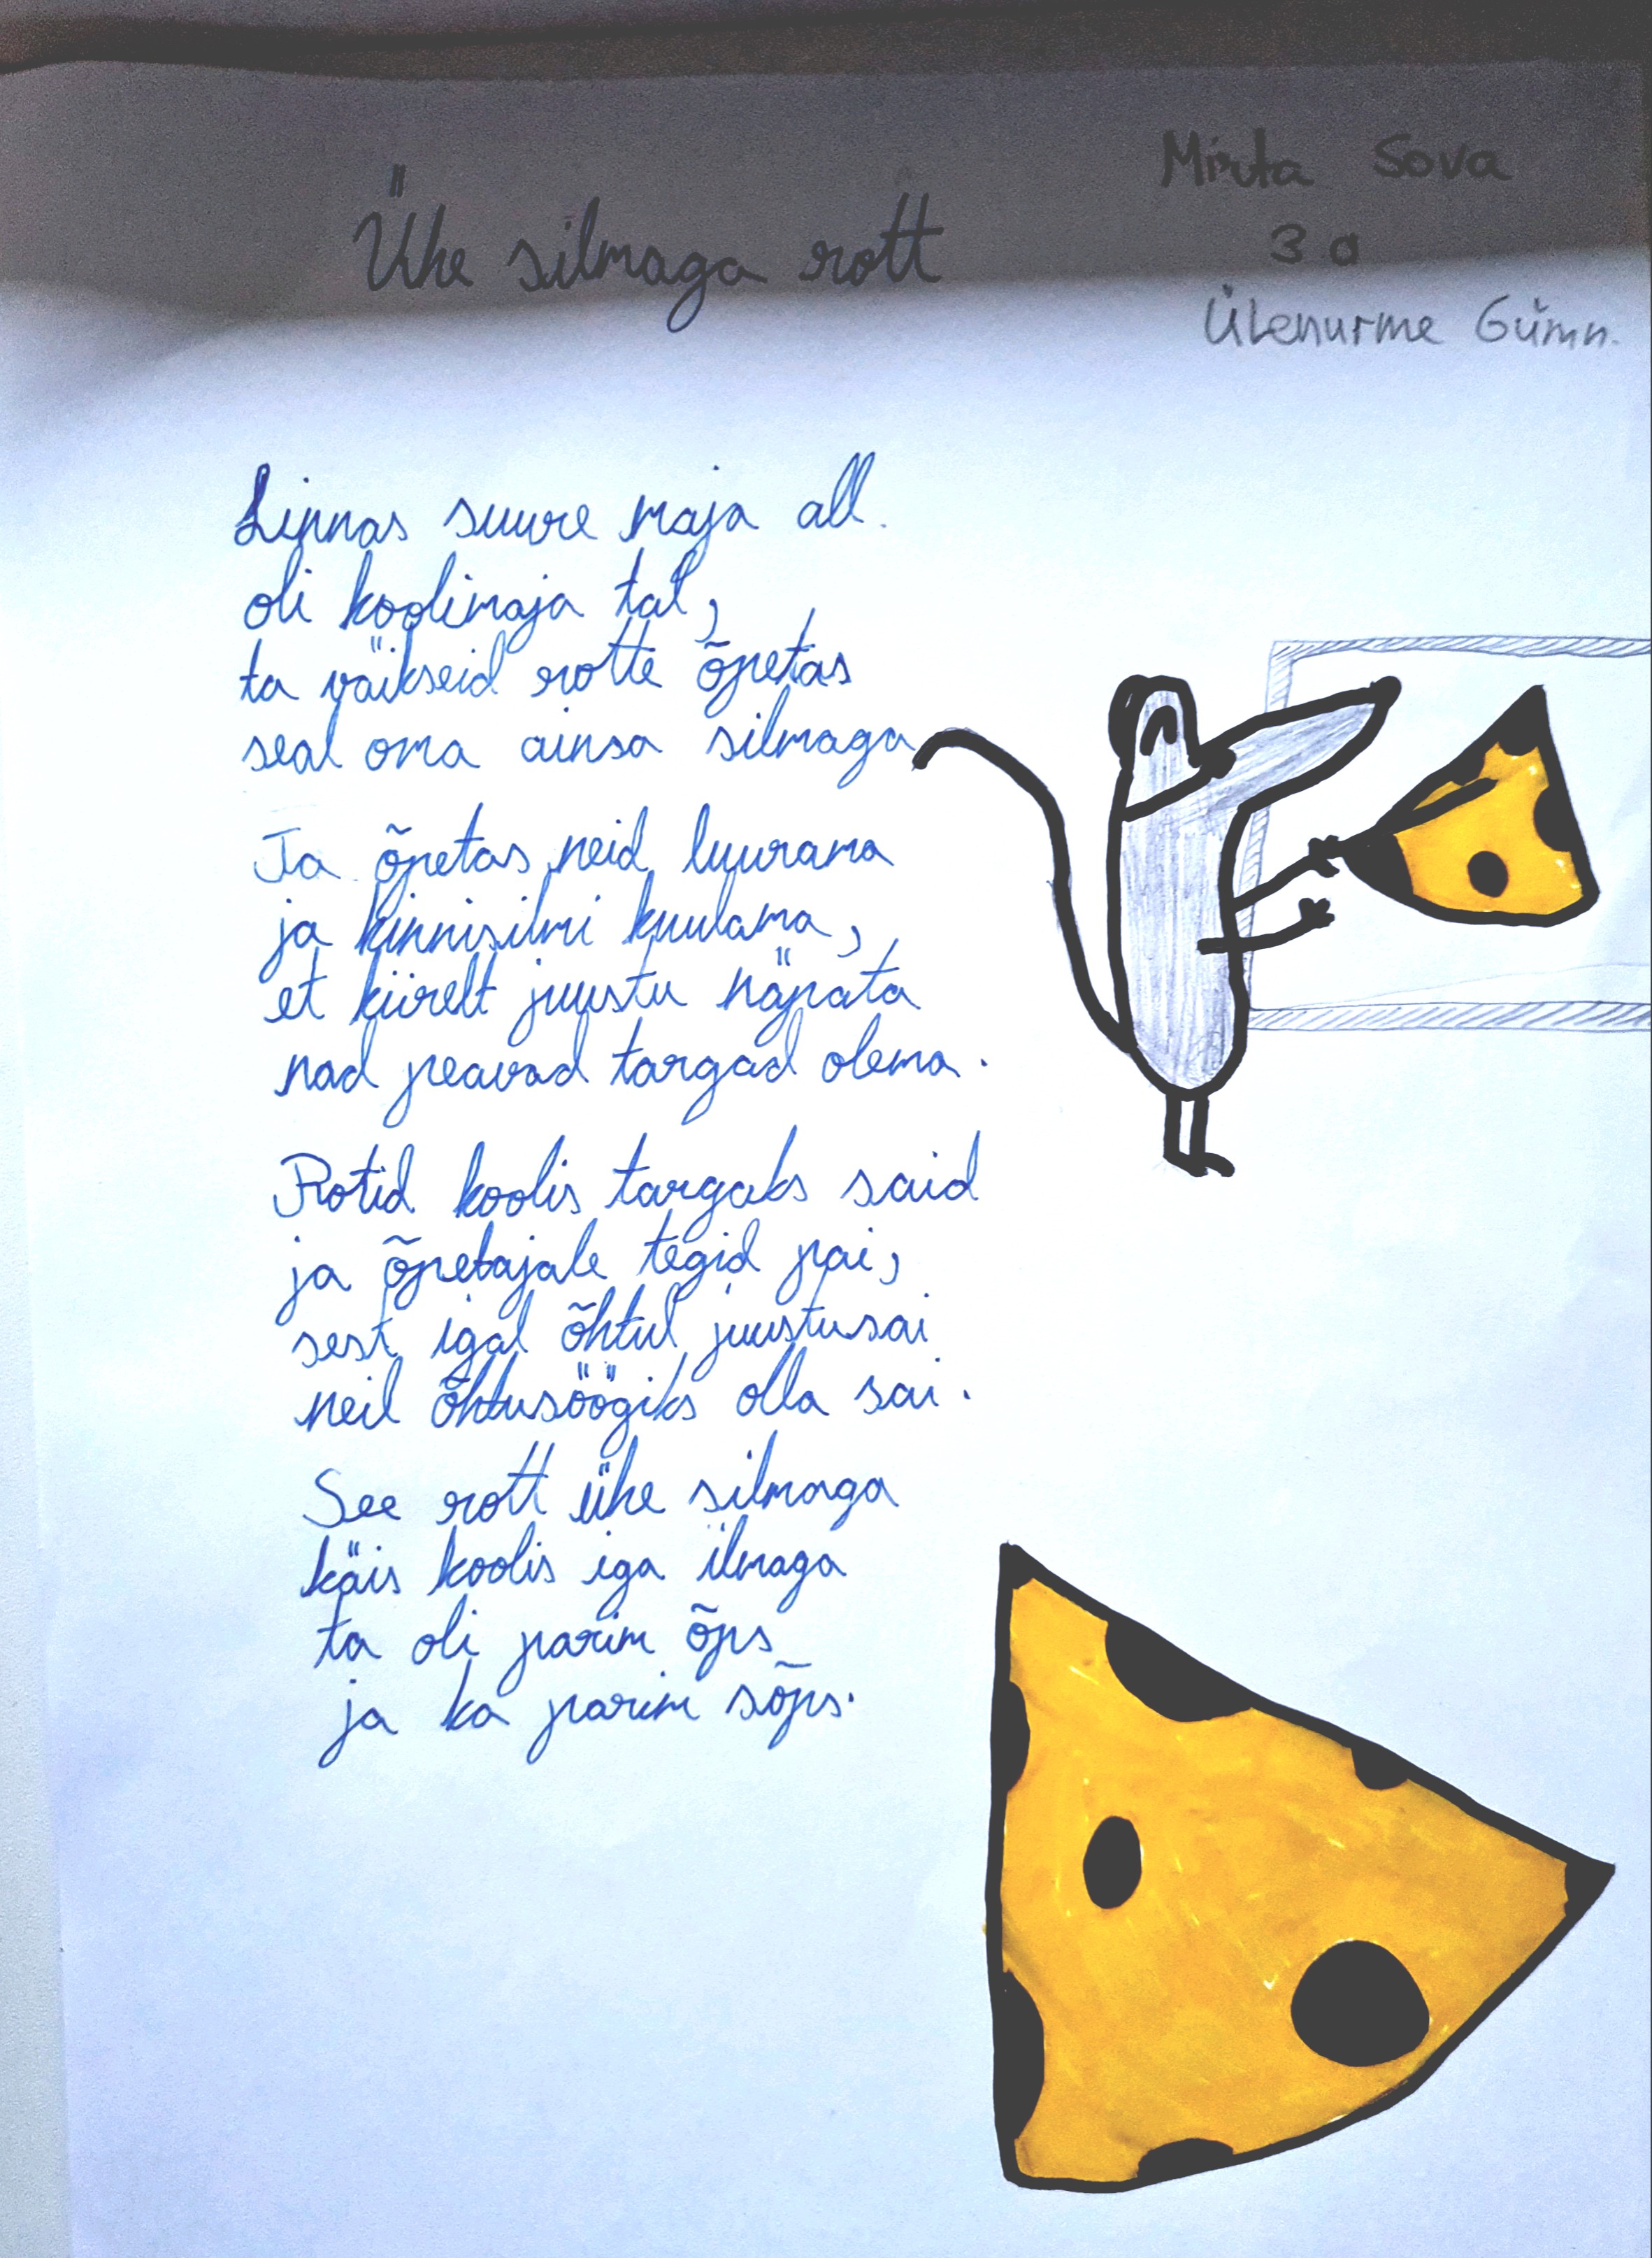 Mirta Sova
3 a
Ülenurme Gümn.
Ühe silmaga rott
Linnas suure maja all
oli koolimaja tal,
ta väikseid rotte õpetas
seal oma ainsa silmaga
Ta õpetas neid luurama
ja kinnisilmi kuulama,
et kiirelt juustu näpata
nad peavad targad olema.
Rotid koolis targaks said
ja õpetajale tegid pai,
sest igal õhtul juustusai
neil õhtusöögiks olla sai.
See rott ühe silmaga
käis koolis iga ilmaga
ta oli parim õps
ja ka parim sõps.